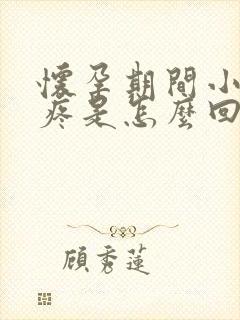 懷孕期間小
疼是怎麼回
顧秀蓮